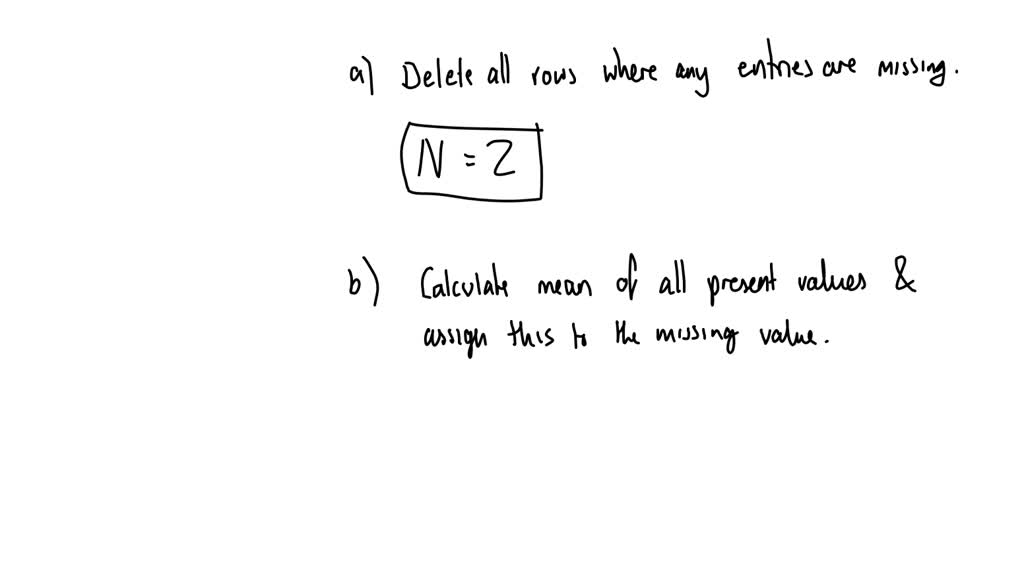 a) Delete all rows where any entries are missing.
N = 2
b) Calculate mean of all present values &
assign this to the missing value.